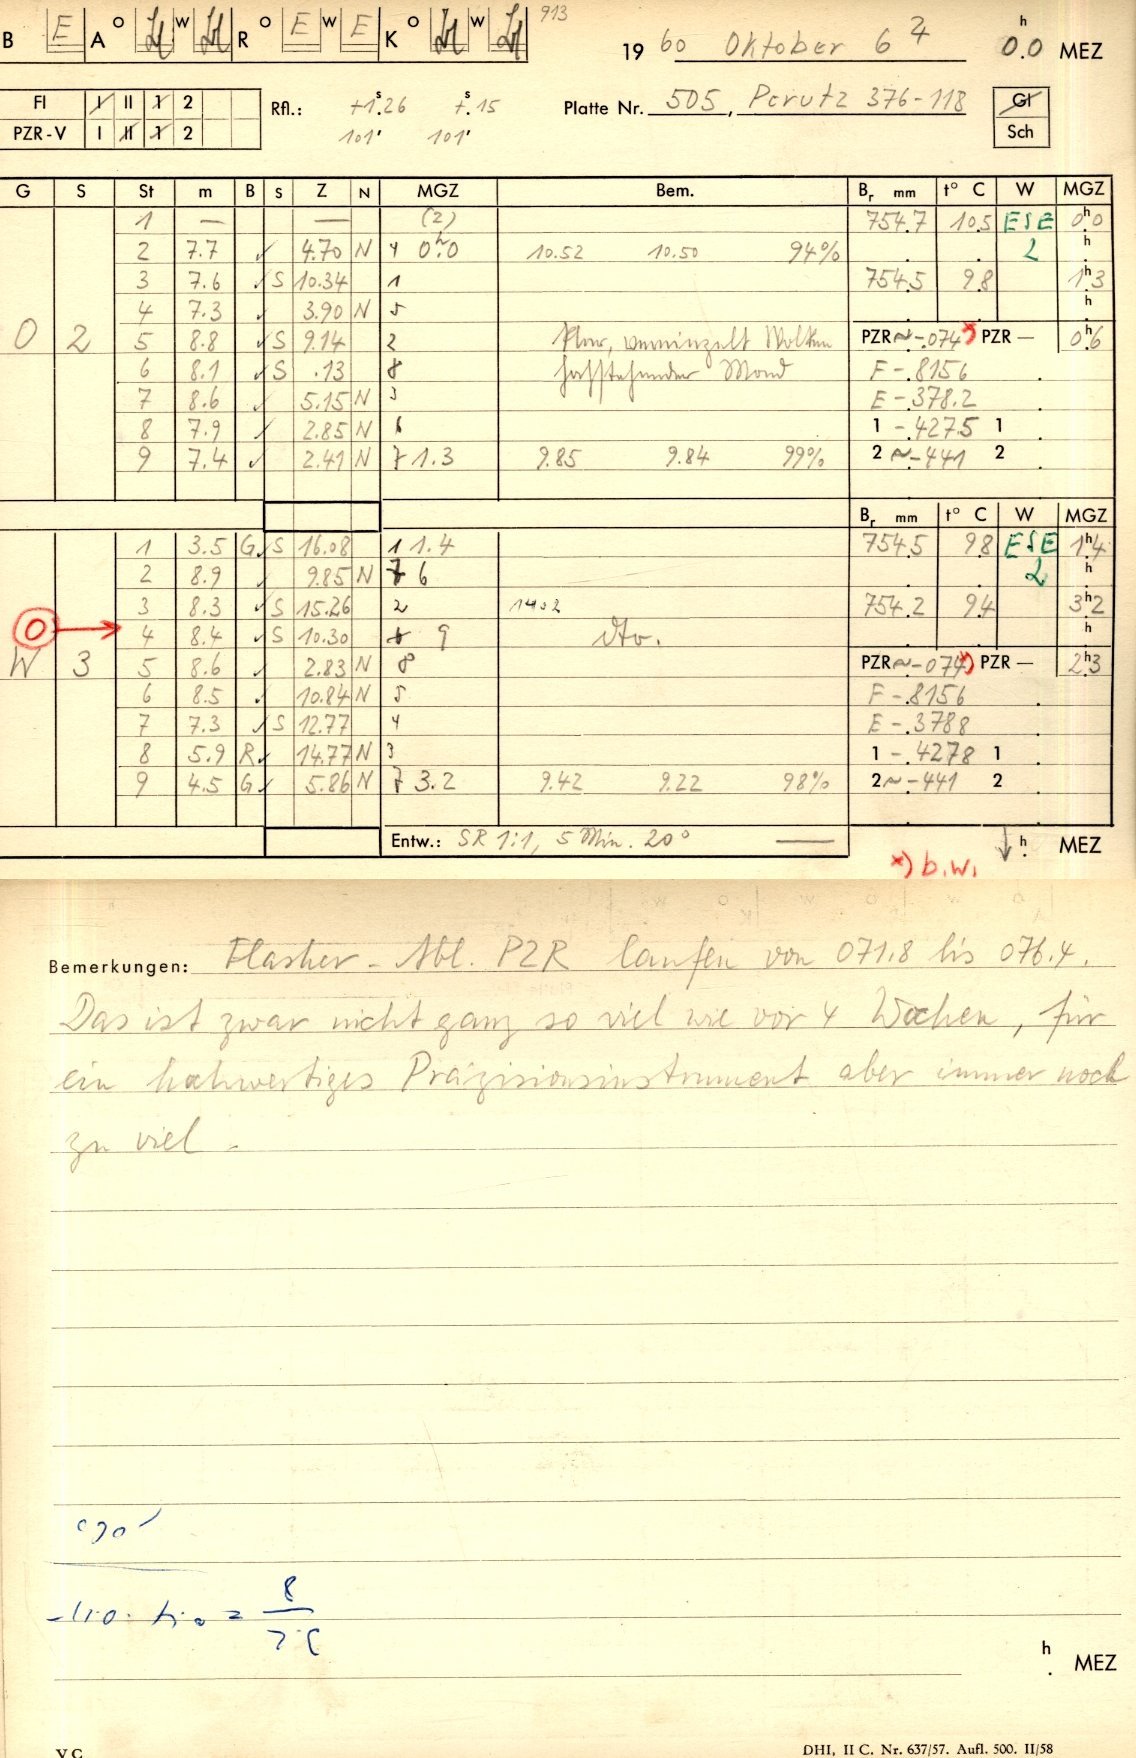 B E A o w R o E w E K o w 913
19 60 Oktober 6 7 0.0 h MEZ
Fl I II 1 2
PZR-V I II 1 2
Rfl.: +1.26 s +.15 s
101' 101'
Platte Nr. 505, Perutz 376-118
Gl
Sch
G S St m B S Z N MGZ Bem. Br mm t° C W MGZ
1 — — (2) 754.7 10.5 ESE 0.0 h
2 7.7 ✓ 4.70 N 4 0.0 h 10.52 10.50 94% 2 h
3 7.6 ✓ S 10.34 1 754.5 9.8 1.3 h
4 7.3 ✓ 3.90 N 5 h
O 2 5 8.8 ✓ S 9.14 2 klar, vereinzelt Wolken PZR ~-.074 *) PZR — 0.6 h
6 8.1 ✓ S .13 8 hochstehender Mond F -.8156
7 8.6 ✓ 5.15 N 3 E -.378.2
8 7.9 ✓ 2.85 N 6 1 -.4275 1
9 7.4 ✓ 2.41 N 7 1.3 9.85 9.84 99% 2 ~-441 2
Br mm t° C W MGZ
1 3.5 G ✓ S 16.08 1 1.4 754.5 9.8 ESE 1.4 h
2 8.9 ✓ 9.85 N 6 2 h
3 8.3 ✓ S 15.26 2 1402 754.2 9.4 3.2 h
O → 4 8.4 ✓ S 10.30 9 dto. h
W 3 5 8.6 ✓ 2.83 N 8 PZR ~-.074 *) PZR — 2.3 h
6 8.5 ✓ 10.84 N 5 F -.8156
7 7.3 ✓ S 12.77 4 E -.3788
8 5.9 R ✓ 14.77 N 3 1 -.4278 1
9 4.5 G ✓ 5.86 N 7 3.2 9.42 9.22 98% 2 ~-441 2
Entw.: SR 1:1, 5 Min. 20° — h MEZ
*) b.w.
Bemerkungen: Flasher-Abl. PZR laufen von 071.8 bis 076.4.
Das ist zwar nicht ganz so viel wie vor 4 Wochen, für
ein hochwertiges Präzisionsinstrument aber immer noch
zu viel.
h MEZ
V C DHI, II C. Nr. 637/57. Aufl. 500. II/58